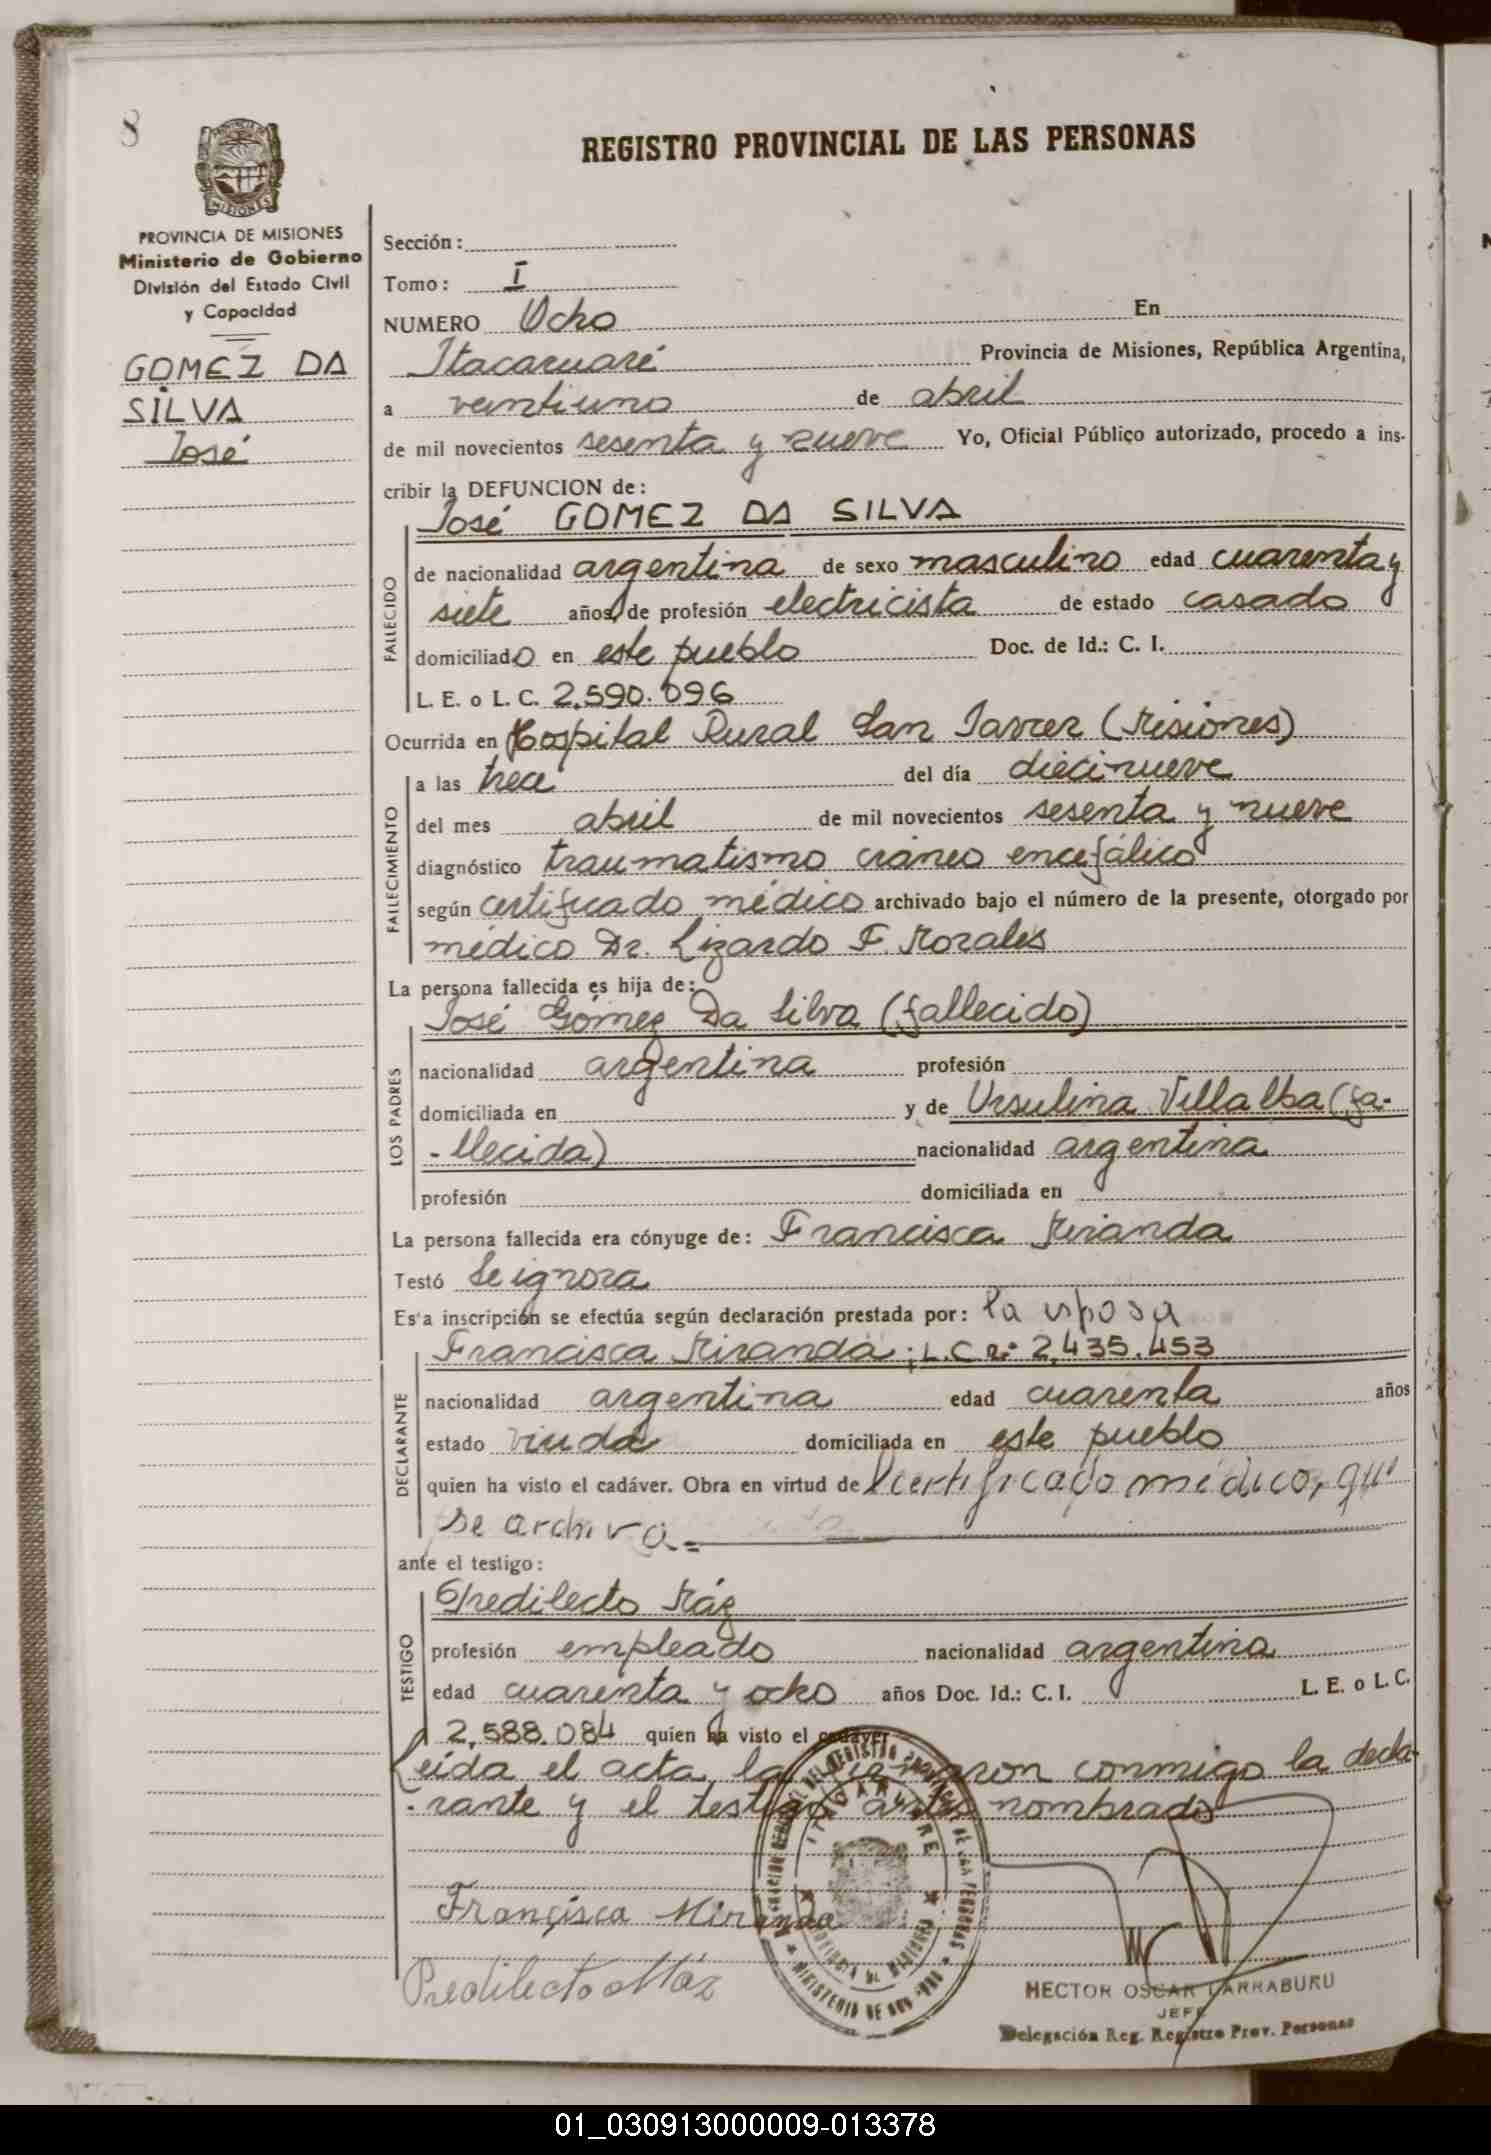 8
REGISTRO PROVINCIAL DE LAS PERSONAS
MISIONES
PROVINCIA DE MISIONES
Ministerio de Gobierno
División del Estado Civil
y Capacidad
GOMEZ DA
SILVA
José
Sección:
Tomo: I
NUMERO Ocho En
Itacaruaré Provincia de Misiones, República Argentina,
a veintiuno de abril
de mil novecientos sesenta y nueve Yo, Oficial Público autorizado, procedo a ins-
cribir la DEFUNCION de:
José GOMEZ DA SILVA
FALLECIDO
de nacionalidad argentina de sexo masculino edad cuarenta y
siete años, de profesión electricista de estado casado
domiciliado en este pueblo Doc. de Id.: C. I.
L. E. o L. C. 2.590.096
Ocurrida en Hospital Rural San Javier (Misiones)
FALLECIMIENTO
a las trece del día diecinueve
del mes abril de mil novecientos sesenta y nueve
diagnóstico traumatismo cráneo encefálico
según certificado médico archivado bajo el número de la presente, otorgado por
médico Dr. Lizardo F. Morales
La persona fallecida es hija de:
LOS PADRES
José Gómez Da Silva (fallecido)
nacionalidad argentina profesión
domiciliada en y de Ursulina Villalba (fa-
-llecida) nacionalidad argentina
profesión domiciliada en
La persona fallecida era cónyuge de: Francisca Miranda
Testó Se ignora
Es'a inscripción se efectúa según declaración prestada por: la esposa
DECLARANTE
Francisca Miranda; L.C nº 2,435.453
nacionalidad argentina edad cuarenta años
estado viuda domiciliada en este pueblo
quien ha visto el cadáver. Obra en virtud de l certificado médico, que
se archiva.=
ante el testigo:
TESTIGO
Predilecto Máz
profesión empleado nacionalidad argentina
edad cuarenta y ocho años Doc. Id.: C. I. L. E. o L. C.
2,588.084 quien ha visto el cadáver
Leída el acta, la firmaron conmigo la decla-
-rante y el testigo antes nombrado
Francisca Miranda
Predilecto Máz
HECTOR OSCAR LARRABURU
JEFE
Delegación Reg. Registro Prov. Personas
01_030913000009-013378